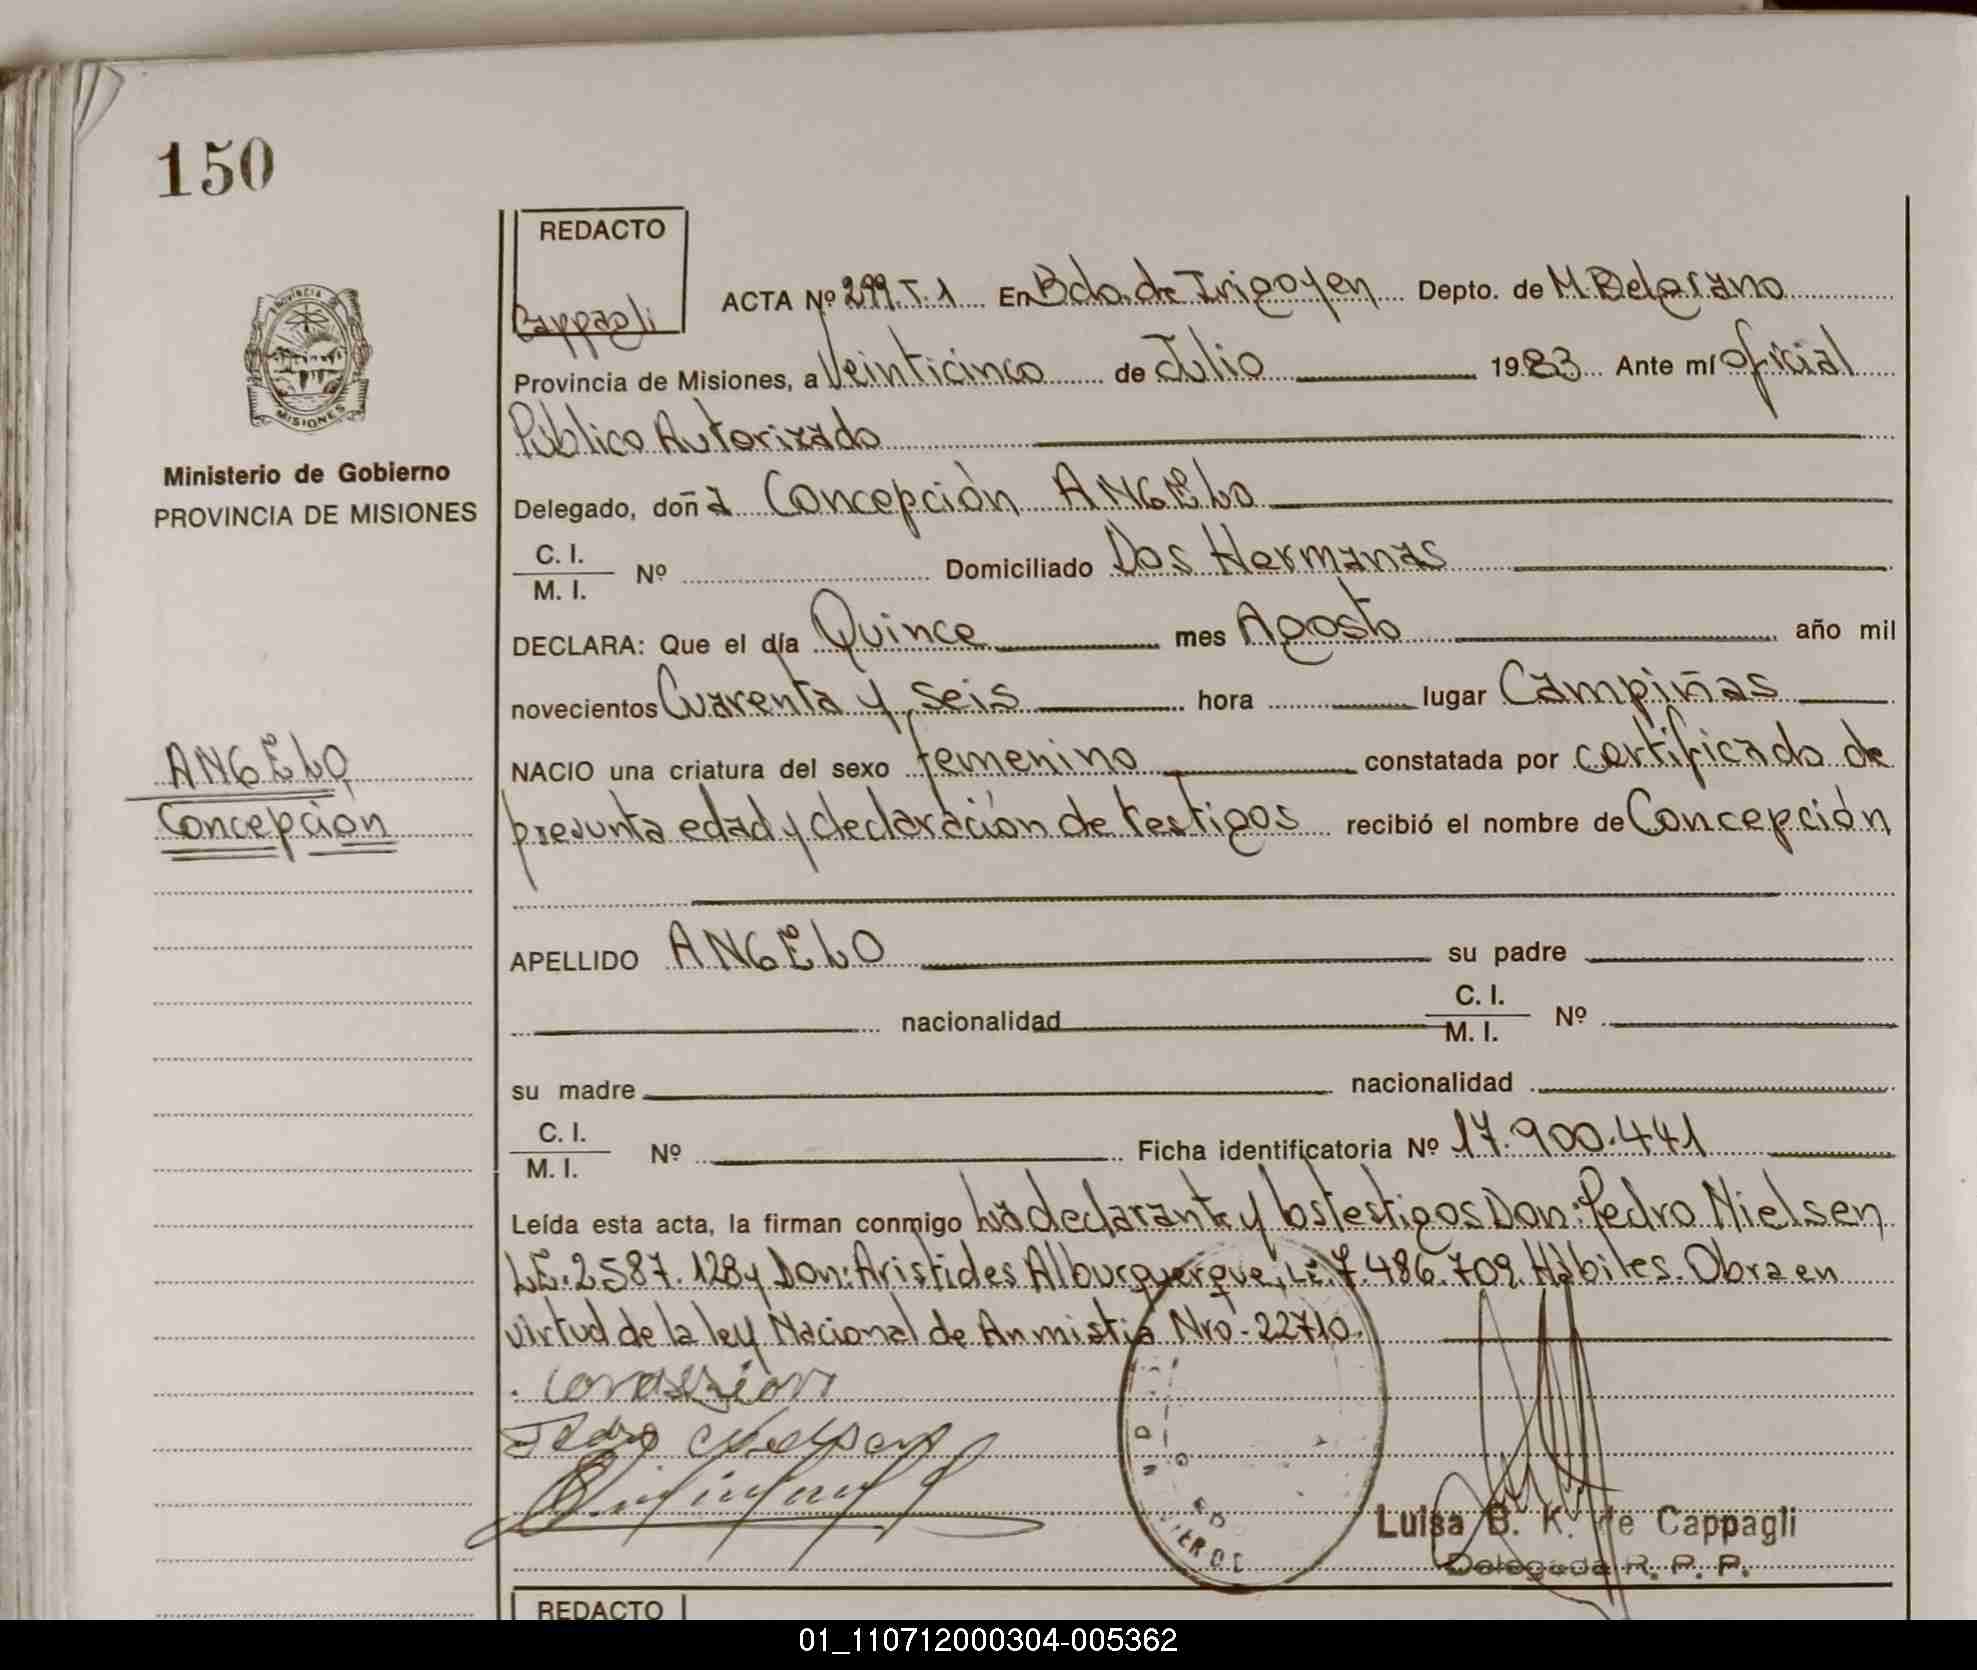 150
REDACTO
Cappagli
ACTA Nº 299.T.1 En Bdo. de Irigoyen Depto. de M. Belgrano
PROVINCIA
MISIONES
Provincia de Misiones, a Veinticinco de Julio 1983 Ante mí Oficial
Público Autorizado
Ministerio de Gobierno
PROVINCIA DE MISIONES
Delegado, doña Concepción ANGELO
C. I.
M. I. Nº Domiciliado Dos Hermanas
DECLARA: Que el día Quince mes Agosto año mil
novecientos Cuarenta y seis hora lugar Campiñas
ANGELO
Concepción
NACIO una criatura del sexo femenino constatada por certificado de
presunta edad y declaración de testigos recibió el nombre de Concepción
APELLIDO ANGELO su padre
nacionalidad C. I.
M. I. Nº
su madre nacionalidad
C. I.
M. I. Nº Ficha identificatoria Nº 17.900.441
Leída esta acta, la firman conmigo La declarante y los testigos Don: Pedro Nielsen
LE. 2587.128 y Don: Aristides Alburquerque, LE. 7.486.709. Hábiles. Obra en
virtud de la ley Nacional de Anmistia Nro-22710.
Pedro Nielsen
Luisa B. K. de Cappagli
Delegada R. P. P.
REDACTO
01_110712000304-005362